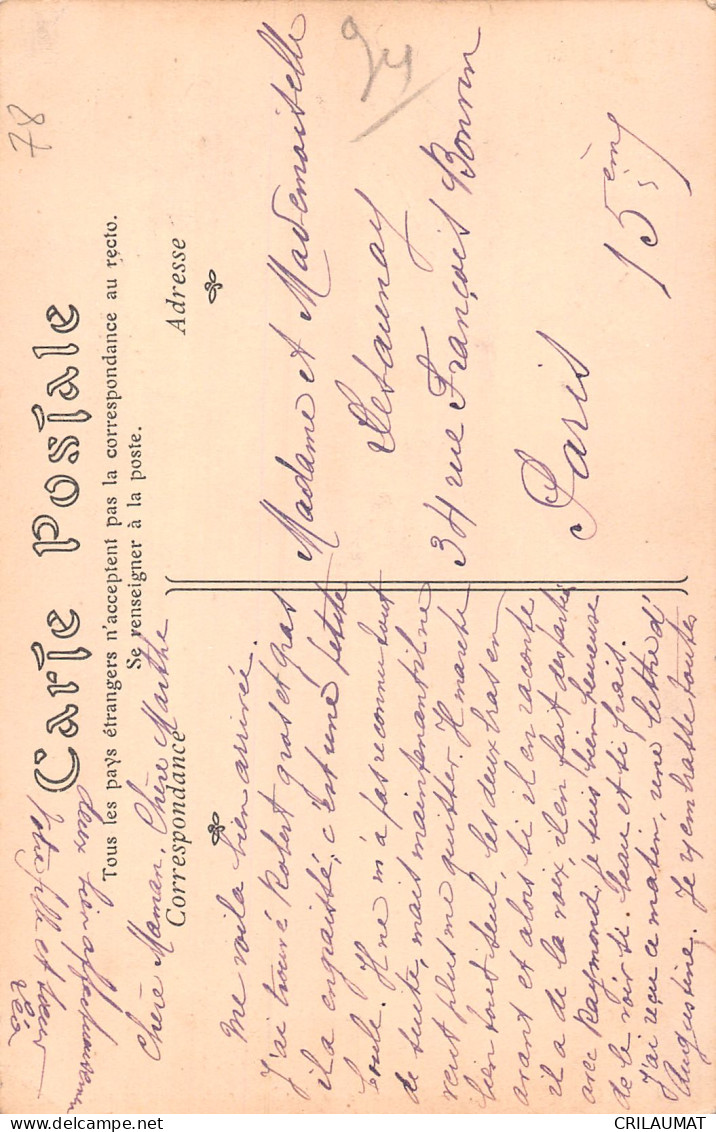 Carte Postale
Tous les pays étrangers n'acceptent pas la correspondance au recto.
Se renseigner à la poste.
Correspondance
Adresse
78
94
Chère Maman, Chère Marthe
Me voilà bien arrivée.
J'ai trouvé Robert gros et gras
il a engraissé, c'est une petite
boule. Il ne m'a pas reconnu tout
de suite, mais maintenant il ne
veut plus me quitter. Il marche
bien tout seul, les deux bras en
avant et alors si il en raconte
il a de la voix, il en fait des parties
avec Raymond, je suis bien heureuse
de le voir si beau et si frais.
J'ai reçu ce matin, une lettre d'
Augustine. Je vs embrasse toutes
deux bien affectueusement
Votre fille et sœur
Léa
Madame et Mademoiselle
Delaunay
34 rue François Bonvin
Paris 15ème
CRILAUMAT